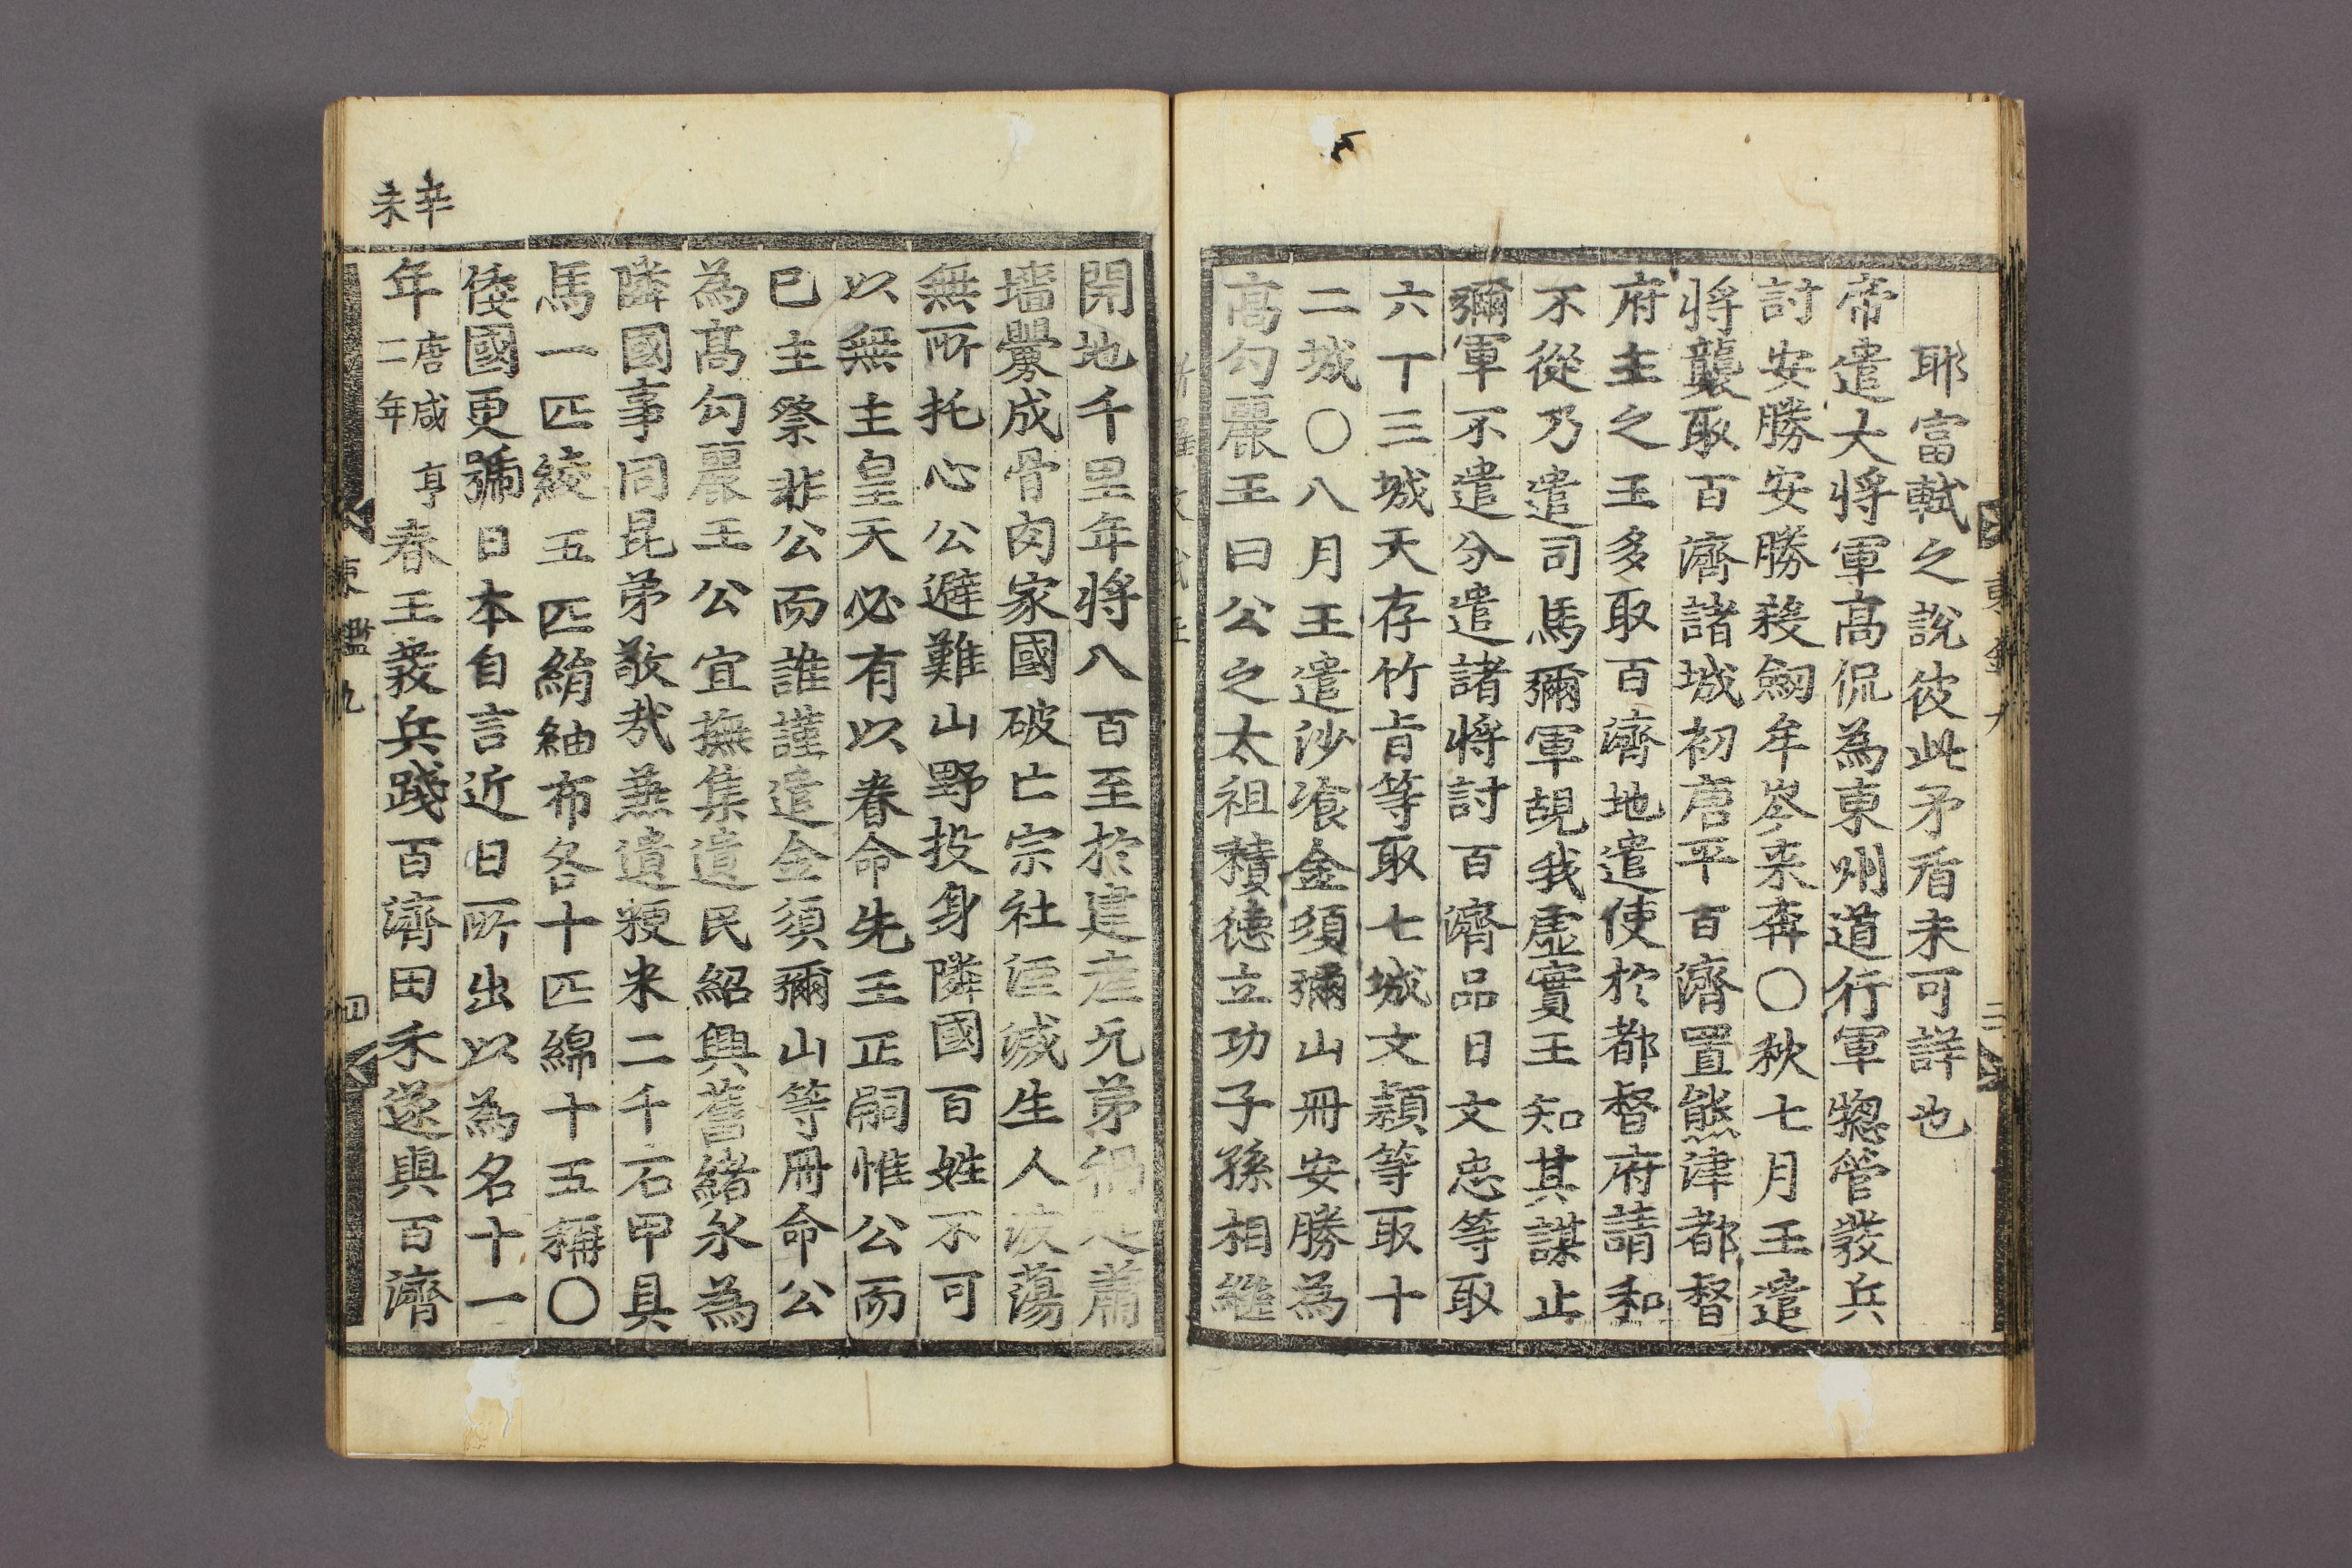 耶富軾之說彼此矛盾未可詳也
帝遣大將軍高侃為東州道行軍摠管發兵
討安勝安勝殺劒牟岑來奔〇秋七月王遣
將襲取百濟諸城初唐平百濟置熊津都督
府主之王多取百濟地遣使於都督府請和
不從乃遣司馬彌軍覘我虛實王知其謀止
彌軍不遣分遣諸將討百濟品日文忠等取
六丁三城天存竹旨等取七城文穎等取十
二城〇八月王遣沙飡金須彌山冊安勝為
高勾麗王曰公之太祖積德立功子孫相繼
開地千里年將八百至於建産兄弟禍起蕭
墻釁成骨肉家國破亡宗社湮滅生人波蕩
無所托心公避難山野投身隣國百姓不可
以無主皇天必有以眷命先王正嗣惟公而
已主祭非公而誰謹遣金須彌山等冊命公
為高勾麗王公宜撫集遺民紹興舊緒永為
隣國事同昆弟敬哉兼遺粳米二千石甲具
馬一匹綾五匹絹紬布各十匹綿十五稱〇
倭國更號日本自言近日所出以為名十一
辛未
年唐咸亨二年春王發兵踐百濟田禾遂與百濟
東鑑九
四